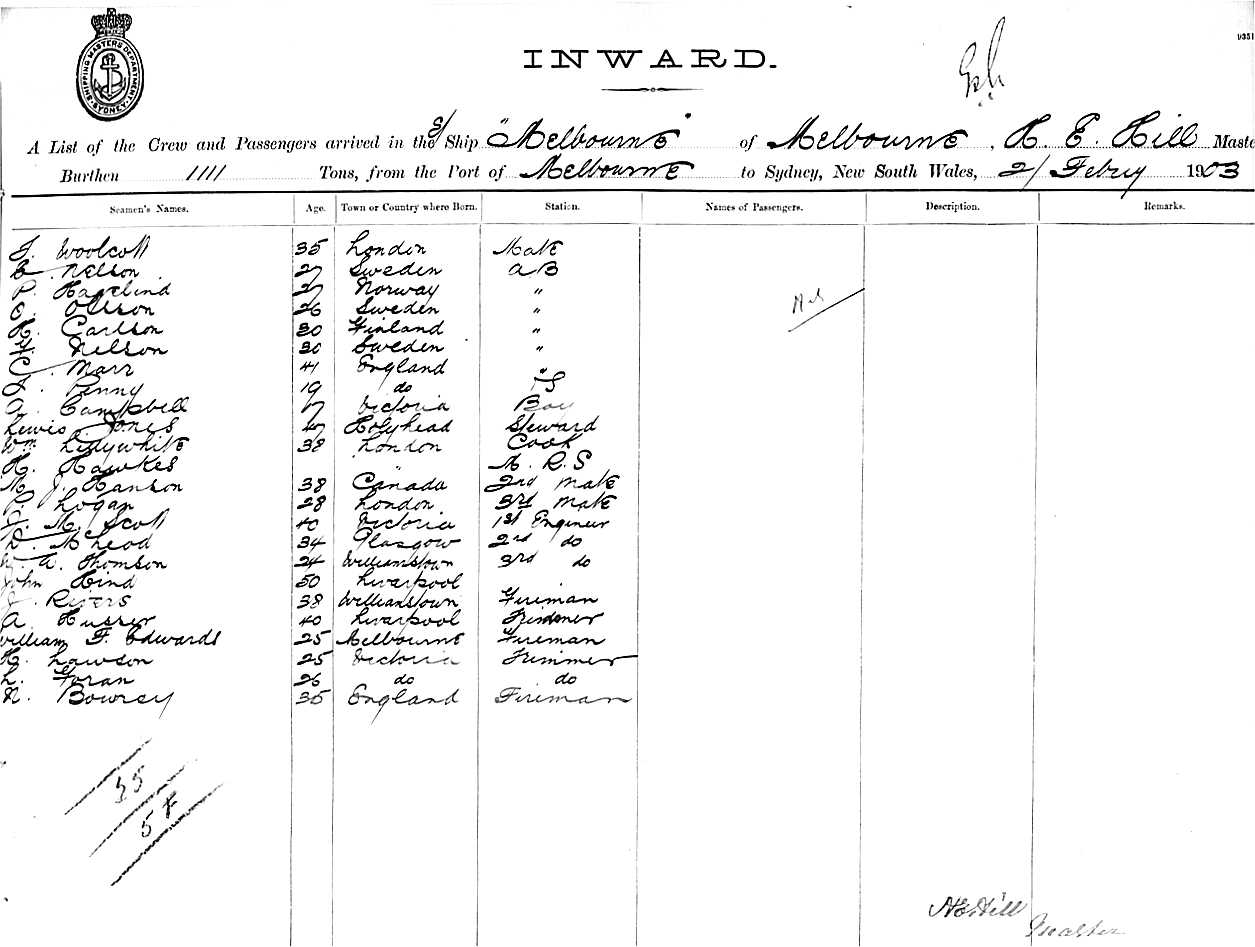 SHIPPING MASTERS DEPARTMENT SYDNEY
INWARD.
A List of the Crew and Passengers arrived in the S/ Ship "Melbourne" of Melbourne, H. E. Hill Maste
Burthen 1111 Tons, from the Port of Melbourne to Sydney, New South Wales, 2/ Febry 1903
Seamen's Names. Age. Town or Country where Born. Station. Names of Passengers. Description. Remarks.
Woolcott 35 London Mate
Nelson 27 Sweden AB
P. Hagelind 27 Norway "
O. Olsson 26 Sweden "
H. Carlson 30 Finland "
Nelson 30 Sweden "
C. Marr 41 England "
Penny 19 do
A. Campbell Victoria Boy
Lewis Jones Holyhead Steward
Wm Lillywhite 38 London Cook
H. Hawkes " M. R. S
M. J. Hanson 38 Canada 2nd Mate
P. Logan 28 London 3rd Mate
M. Scott 40 Victoria 1st Engineer
34 Glasgow 2nd do
A. Thomson 24 Williamstown 3rd do
John Hind 50 Liverpool
J. Rivers 38 Williamstown Fireman
A. 40 Liverpool
William F. Edwards 25 Melbourne Fireman
H. Lawson 25 Victoria Trimmer
L. Foran 26 do do
N. Bowrey 35 England Fireman
H E Hill
Master